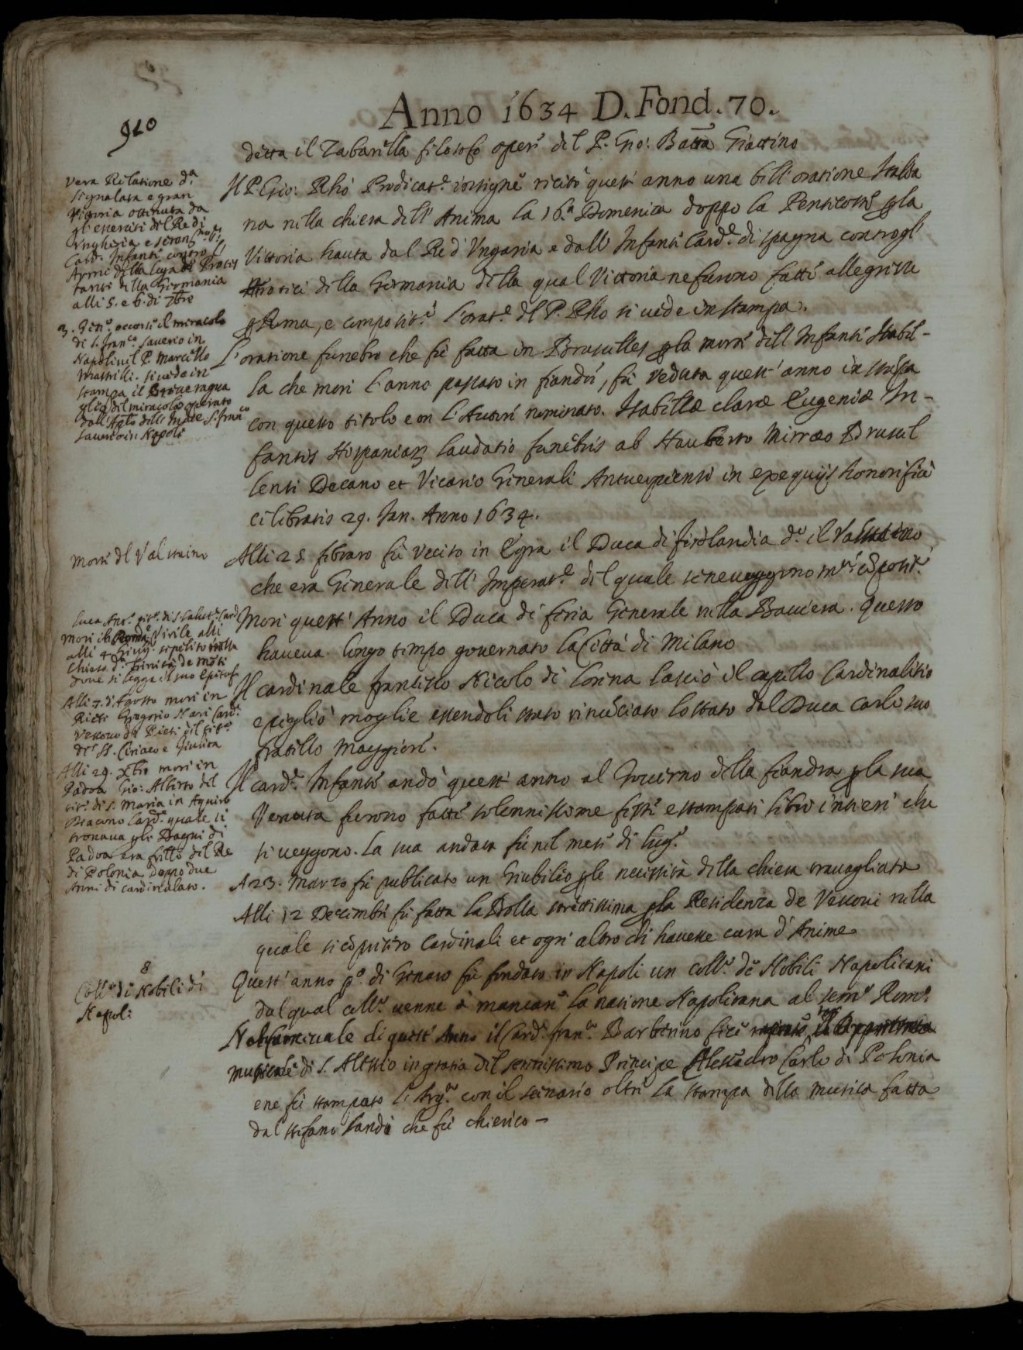 Anno 1634 D. Fond. 70.
910
detta il Zabarella filosofo opera del P. Gio: Batta Giattino
Il P. Gio: Rhò Predicat.e insigne recitò quest' anno una bell' oratione Italia
na nella chiesa dell' Anima la 16.a Domenica doppo la Pentecoste p la
Vittoria hauta dal Re d' Ungaria e dall' Infante Card.e di Spagna contro gl'
Heretici della Germania della qual Vittoria ne furono fatte allegrezze
p Roma, e composit.i l'orat.e del P. Rho si vede in stampa.
L'oratione funebre che fu fatta in Bruselles p la morte dell' Infante Isabel-
la che morì l'anno passato in fiandra, fu veduta quest' anno in stampa
con questo titolo e con l'Autore nominato. Isabellæ claræ Eugeniæ In-
fantis Hispaniaru laudatio funebris ab Hauberto Mirræo Bruxel
lensi Decano et Vicario Generali Antuerpiensi in exequijs honorificè
celebratis 29. Jan. Anno 1634.
Alli 25 febraro fu ucciso in Egra il Duca di firdlandia d.o il
che era Generale dell' Imperat.e del quale se ne veggono
Morì quest' Anno il Duca di feria Generale nella Baviera. Questo
haveva longo tempo governato la Città di Milano
Il cardinale francesco Nicolo di Lorena lasciò il capello Cardinalitio
e pigliò moglie essendoli stato rinunciato lo stato dal Duca Carlo suo
fratello maggiore.
Il card.e Infante andò quest' anno al Governo della fiandra p la sua
Venuta furono fatte solennissime feste e stampati libri intieri che
si veggono. La sua andata fu nel mese di lug.o
A 23. Marzo fu publicato un Giubileo p le necessità della chiesa travagliata
Alli 12 Decembre fu fatta la Bolla strettissima p la Residenza de Vescovi nella
quale si copristro Cardinali et ogn' altro ch' havesse cura d'Anime
Quest' anno p.o di Genaro fu fondato in Napoli un coll.o de Nobili Napolitani
dal qual coll.o venne à mancare la natione Napolitana al sem.o Rom.o
Nel Carnevale di quest' Anno il Card. fran.co Barberino fece
musicale di S. Alessio in gratia del serenissimo Principe Alessandro Carlo di Polonia
e ne fu stampato l'Arg.o con il scenario oltre la stampa della musica fatta
dal stefano Landi che fu chierico –
Vera Relatione d.a
segnalata e gran
Vittoria ottenuta da
gl'eserciti del Re di
Ungheria e seren.mo
Card. Infante contro l'
Armi della lega de Protes
tanti della Germania
alli 5. e 6. di 7bre
3. Gen.o occorse il miracolo
di S. fran.co Saverio in
Napoli nel P. Marcello
Mastrilli. si vede in
stampa il
glio del miracolo operato
dall' Aplo dell' Indie S. fran.co
Saverio in Napoli
Morte del Valstaino
alli 4 Giug.o sepolito nella
Chiesa d.a Trinità de Monti
dove si legge il suo Epitaf.
Alli 7. d'Agosto morì in
Rieti Gregorio Nari Card.
Vescovo di Rieti del tit.o
de SS. Ciriaco e Giulitta
Alli 29. Xbre morì in
Padoa Gio: Alberto del
tit. di S. Maria in Aquiro
Diacono Card. quale si
trovava p li Bagni di
Padoa era frello del Re
di Polonia doppo due
Anni di cardinalato.
8
Coll.o de Nobili di
Napoli